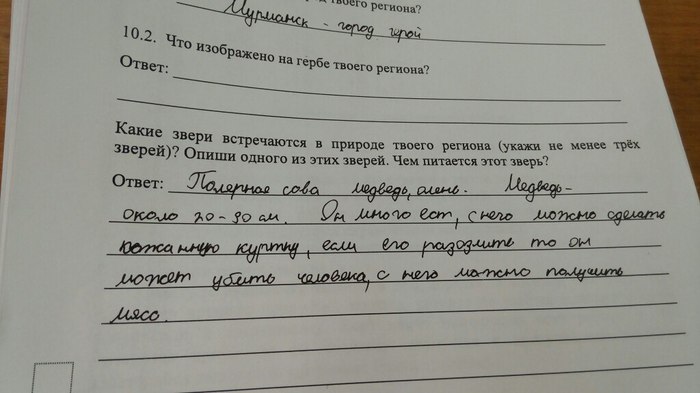 твоего региона?
Мурманск - город герой
10.2. Что изображено на гербе твоего региона?
Ответ:
Какие звери встречаются в природе твоего региона (укажи не менее трёх
зверей)? Опиши одного из этих зверей. Чем питается этот зверь?
Ответ: Полерная сова медведь, олень. Медведь-
около 20-30 см. Он много ест, с него можно сделать
кожанную куртку, если его разозлить то он
может убить человека, с него можно получить
мясо.